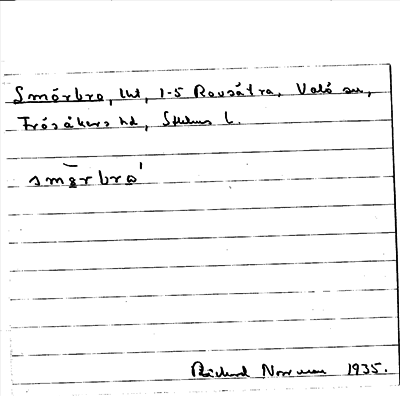 Smörbro, lht, 1-5 Ravsätra, Valö sn,
Frösåkers hd, Sthlms l.
smǝrbro'
Rickard Norrman 1935.